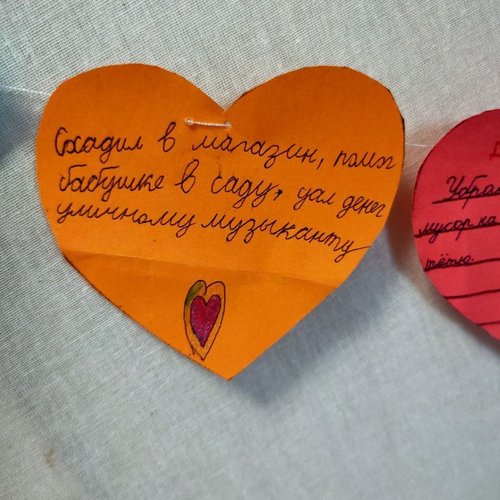 Сходил в магазин, помог
бабушке в саду, дал денег
уличному музыканту
Убрал
мусор на